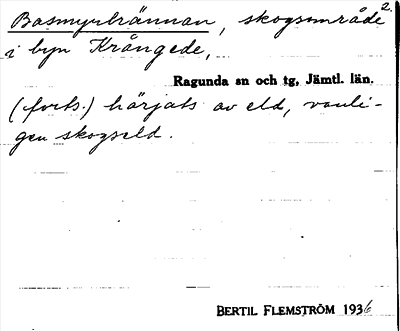 Basmyrbrännan, skogsområde 2.
i byn Krångede,
Ragunda sn och tg, Jämtl. län.
(forts.) härjats av eld, vanli-
gen skogseld.
BERTIL FLEMSTRÖM 1936